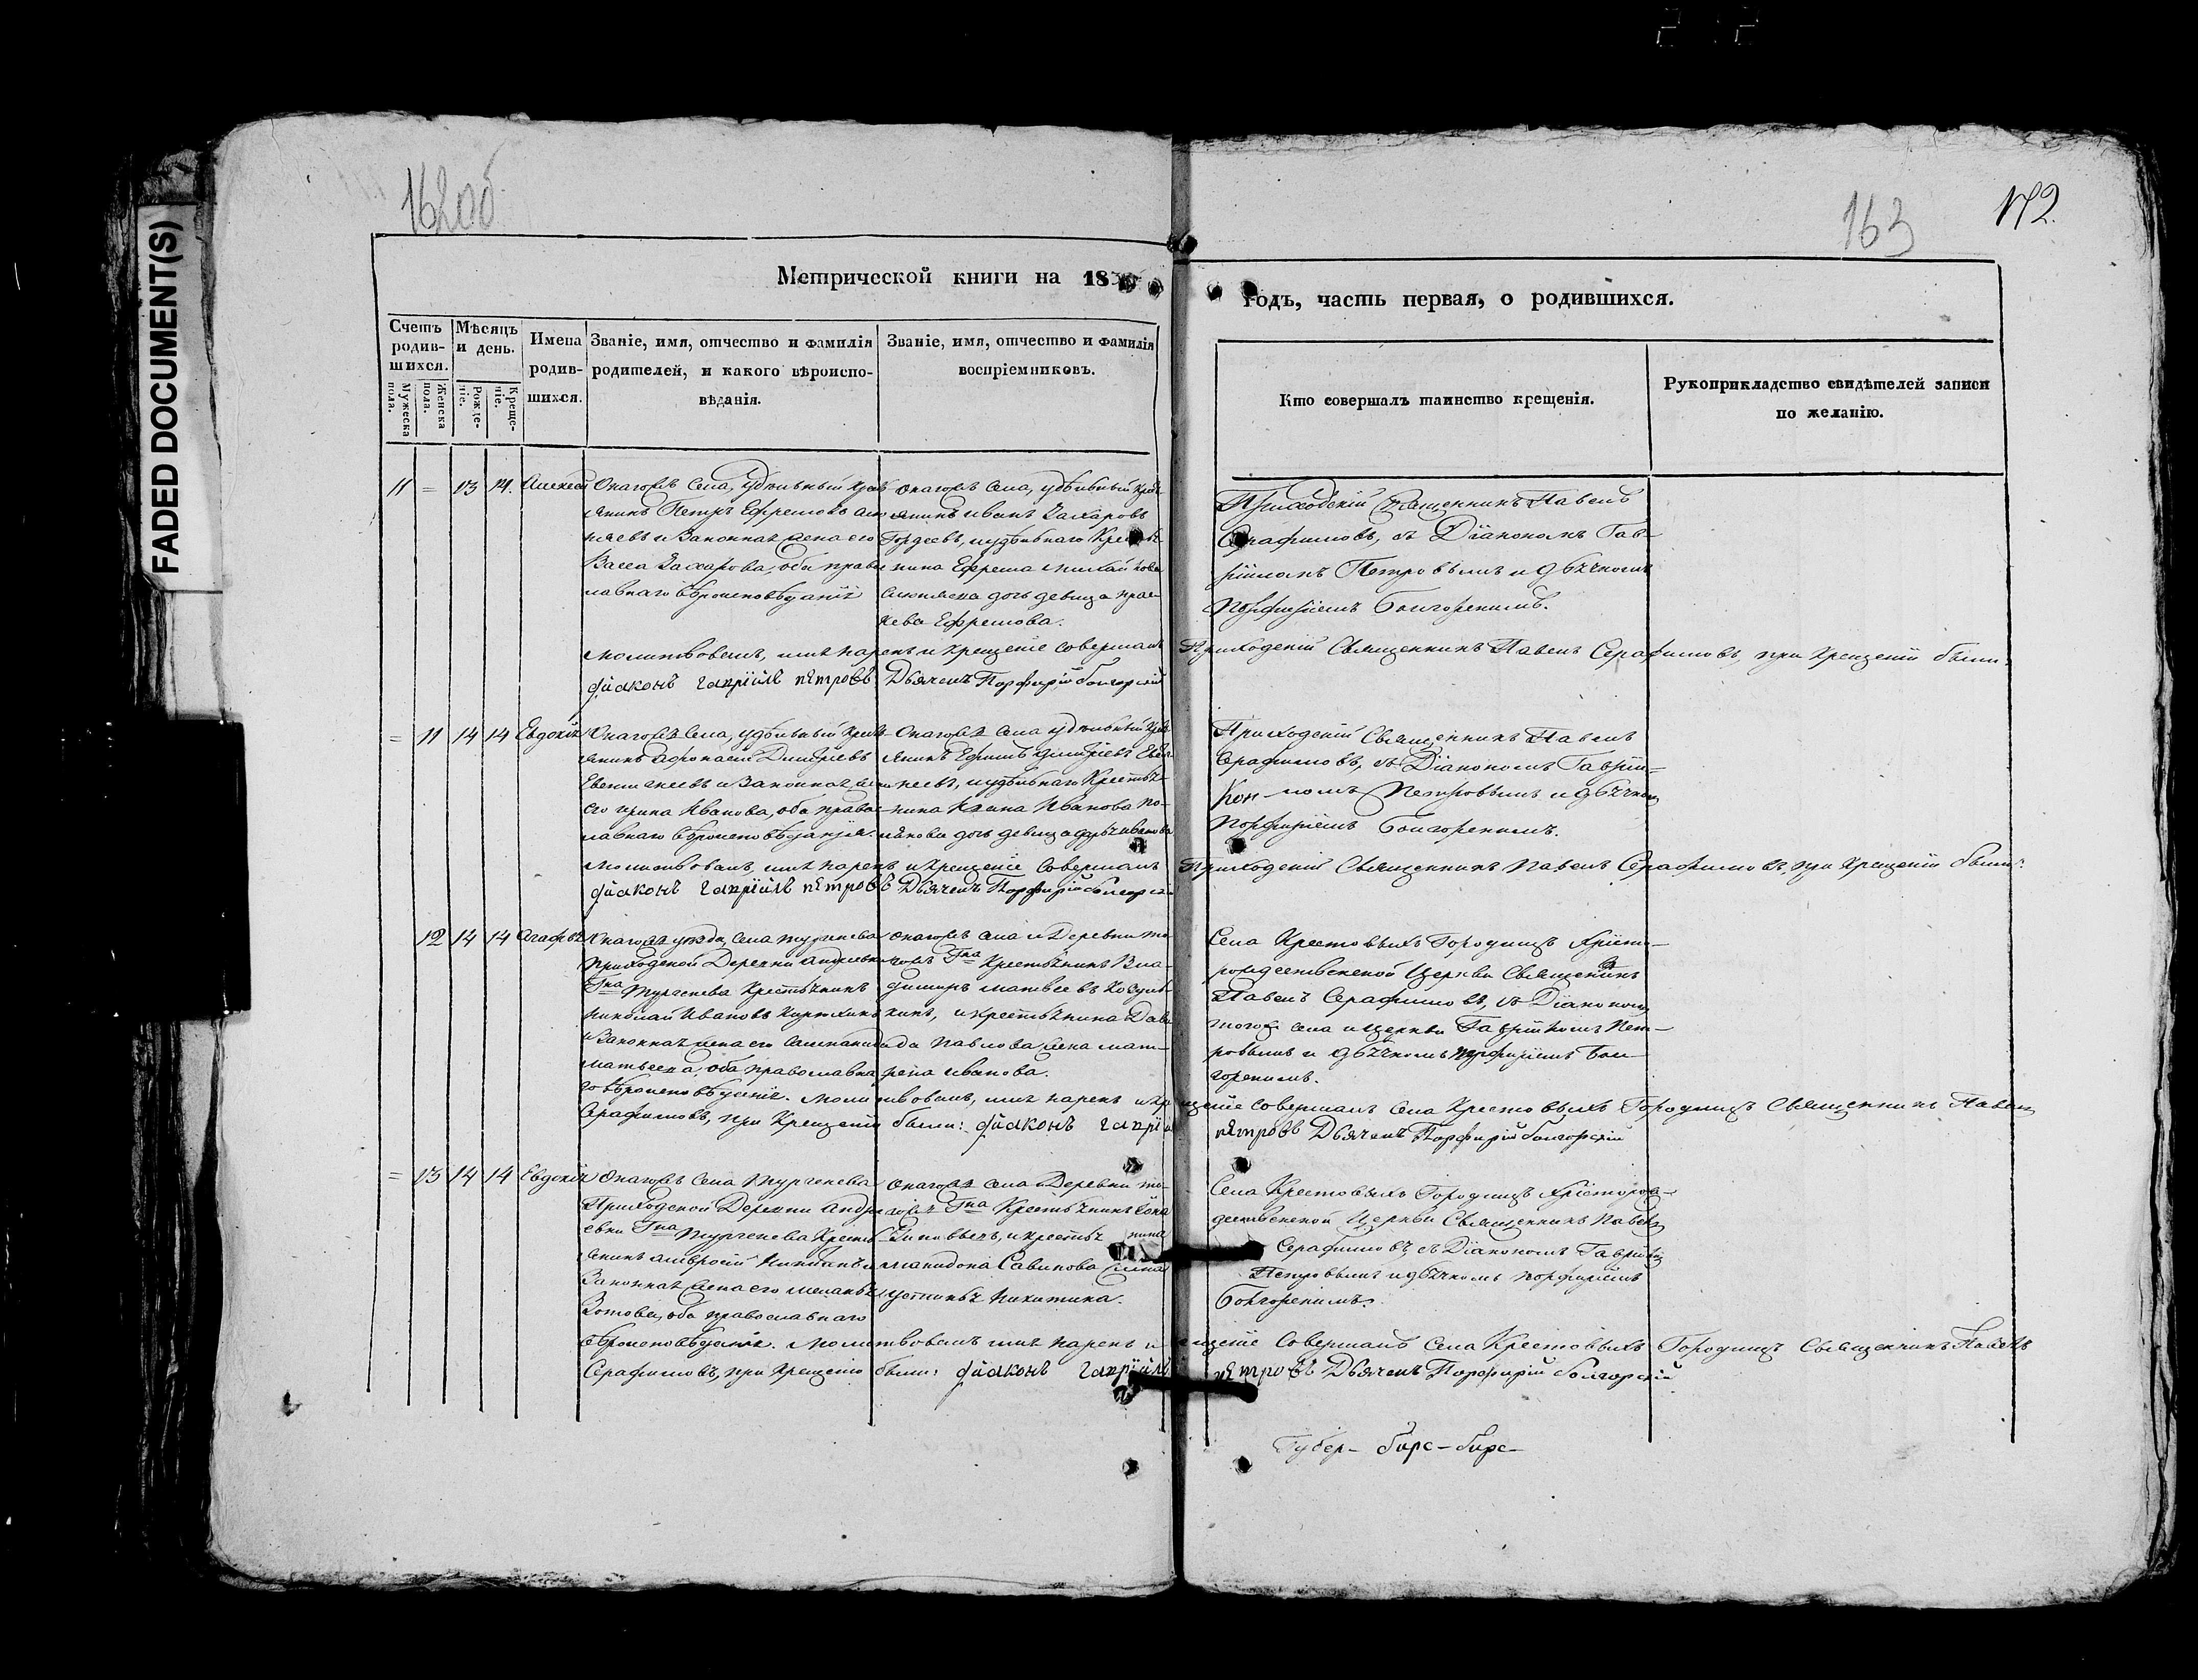 FADED DOCUMENT(S)
162 об
163
172.
Метрической книги на 18
годъ, часть первая, о родившихся.
Счетъ родив-шихся.
Мужеска пола.
Женска пола.
Мѣсяцъ и день.
Рожде-ніе.
Креще-ніе.
Имена родив-шихся.
Званіе, имя, отчество и фамилія родителей, и какого вѣроиспо-вѣданія.
Званіе, имя, отчество и фамилія воспріемниковъ.
Кто совершалъ таинство крещенія.
Рукоприкладство свидѣтелей записи по желанію.
11 = 13 14. Алексей
Онагожъ Села, удѣльный крѣ
янинъ Петръ Ефремовъ
и Законная жена его
Васса Захарова, оба право
славнаго вѣроисповѣданія
онагожъ Села, удѣльный крѣ
янинъ Иванъ Захаровъ
Гордеевъ, и удѣльнаго Кре
нина Ефрема
дочь девица Прас
кева Ефремова.
Приходскій Священникъ Павелъ
Серафимовъ, съ Діакономъ Гав-
ріиломъ Петровымъ и дьячкомъ
Порфиріемъ Болгорскимъ.
Молитвовалъ, имя нарекъ и крещеніе совершалъ Приходскій Священникъ Павелъ Серафимовъ, при крещеніи были:
діаконъ гавріилъ пѣтровъ Дьячекъ Порфирій болгорскій
= 11 14 14 Евдокія
Онагожъ Села, удѣльный Крѣ
янинъ Афонасей Дмитріевъ
и Законная жена
его Ирина Иванова, оба право
славнаго вѣроисповѣданія.
Онагожъ Села удѣльный Крѣ
янинъ Ефимъ Дмитріевъ
и удѣльнаго Крестья
нина Ивана Иванова По-
лякова дочь девица Иванова
Приходскій Священникъ Павелъ
Серафимовъ, съ Діакономъ Гавріи-
ломъ Петровымъ и дьячкомъ
Порфиріемъ Болгорскимъ.
Молитвовалъ, имя нарекъ и крещеніе Совершалъ Приходскій Священникъ Павелъ Серафимовъ, при крещеніи были:
діаконъ гавріилъ пѣтровъ Дьячекъ Порфирій болгорскій
12 14 14 Агафья
Онагожъ уѣзда, Села Тургенева
Приходской Деревни Андреевки
Гна Тургенева Крестьянинъ
Николай Ивановъ
и Законная жена его
Матвеева, оба православна
го вѣроисповѣданія.
онагожъ Села и Деревни то
гожъ Гна Крестьянинъ Вла
димиръ Матвеевъ
и крестьянина Дави
да Павлова жена Мат-
рена Иванова.
Села Крестовыхъ Городищъ Хрісто-
рождественской Церкви Священникъ
Павелъ Серафимовъ, съ Діакономъ
тогожъ села и Церкви Гавріиломъ Пет-
ровымъ и дьячкомъ Порфиріемъ Бол-
горскимъ.
Молитвовалъ, имя нарекъ и крещеніе совершалъ Села Крестовыхъ Городищъ Священникъ Павелъ
Серафимовъ, при Крещеніи были: діаконъ гавріилъ пѣтровъ Дьячекъ Порфирій болгорскій
= 13 14 14 Евдокія
Онагожъ Села Тургенева
Приходской Деревни Андре
евки Гна Тургенева Кресть
янинъ Амвросій Никитинъ и
Законная жена его Меланья
Зотова, оба православнаго
вѣроисповѣданія.
Онагожъ Села и Деревни то-
гожъ Гна Крестьянинъ
Зиновьевъ, и крестья нина
Макидона Савинова жена
устинья Никитина.
Села Крестовыхъ Городищъ Хрісторож-
дественской Церкви Священникъ Павелъ
Серафимовъ, съ Діакономъ Гавріиломъ
Петровымъ и дьячкомъ Порфиріемъ
Болгорскимъ.
Молитвовалъ имя нарекъ и крещеніе Совершалъ Села Крестовыхъ Городищъ Священникъ Павелъ
Серафимовъ, при Крещеніи были: діаконъ гавріилъ пѣтровъ Дьячекъ Порфирій болгорскій